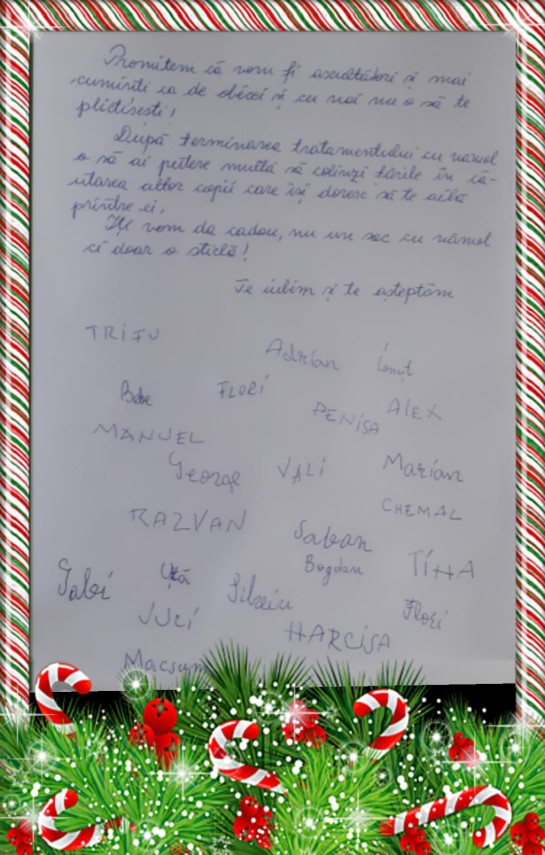 Promitem că vom fi ascultători și mai
cuminti ca de obicei și cu noi nu o să te
plictisesti!
După terminarea tratamentului cu nămol
o să ai putere multă să colinzi țările în că-
utarea altor copii care își doresc să te aibă
printre ei.
Iți vom da cadou, nu un sac cu nămol
ci doar o sticlă!
Te iubim și te așteptăm
TRIFU
Adrian Ionuț
FLORI
DENISA ALEX
MANUEL
George VALI Marian
CHEMAL
RAZVAN
Saban
Bogdan TINA
Gabi Uță Silviu Flori
JULI
NARCISA